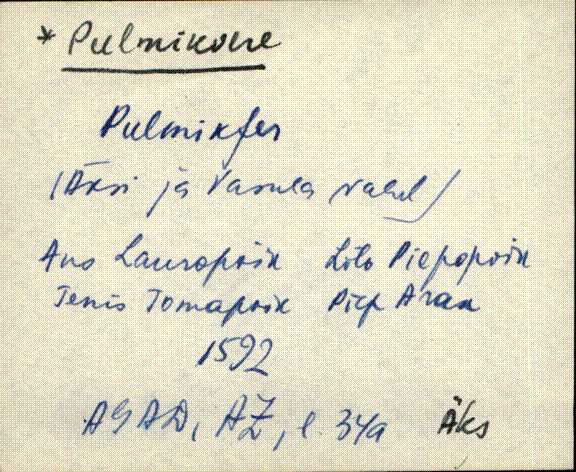 * Pulmikvere
Pulmikfer
(Äksi ja Vasula vahel)
Ans Lauropoik Lito Piepopoik
Tenis Tomapoik Piep Arax
1592
AGAD, AŻ, l. 34a Äks